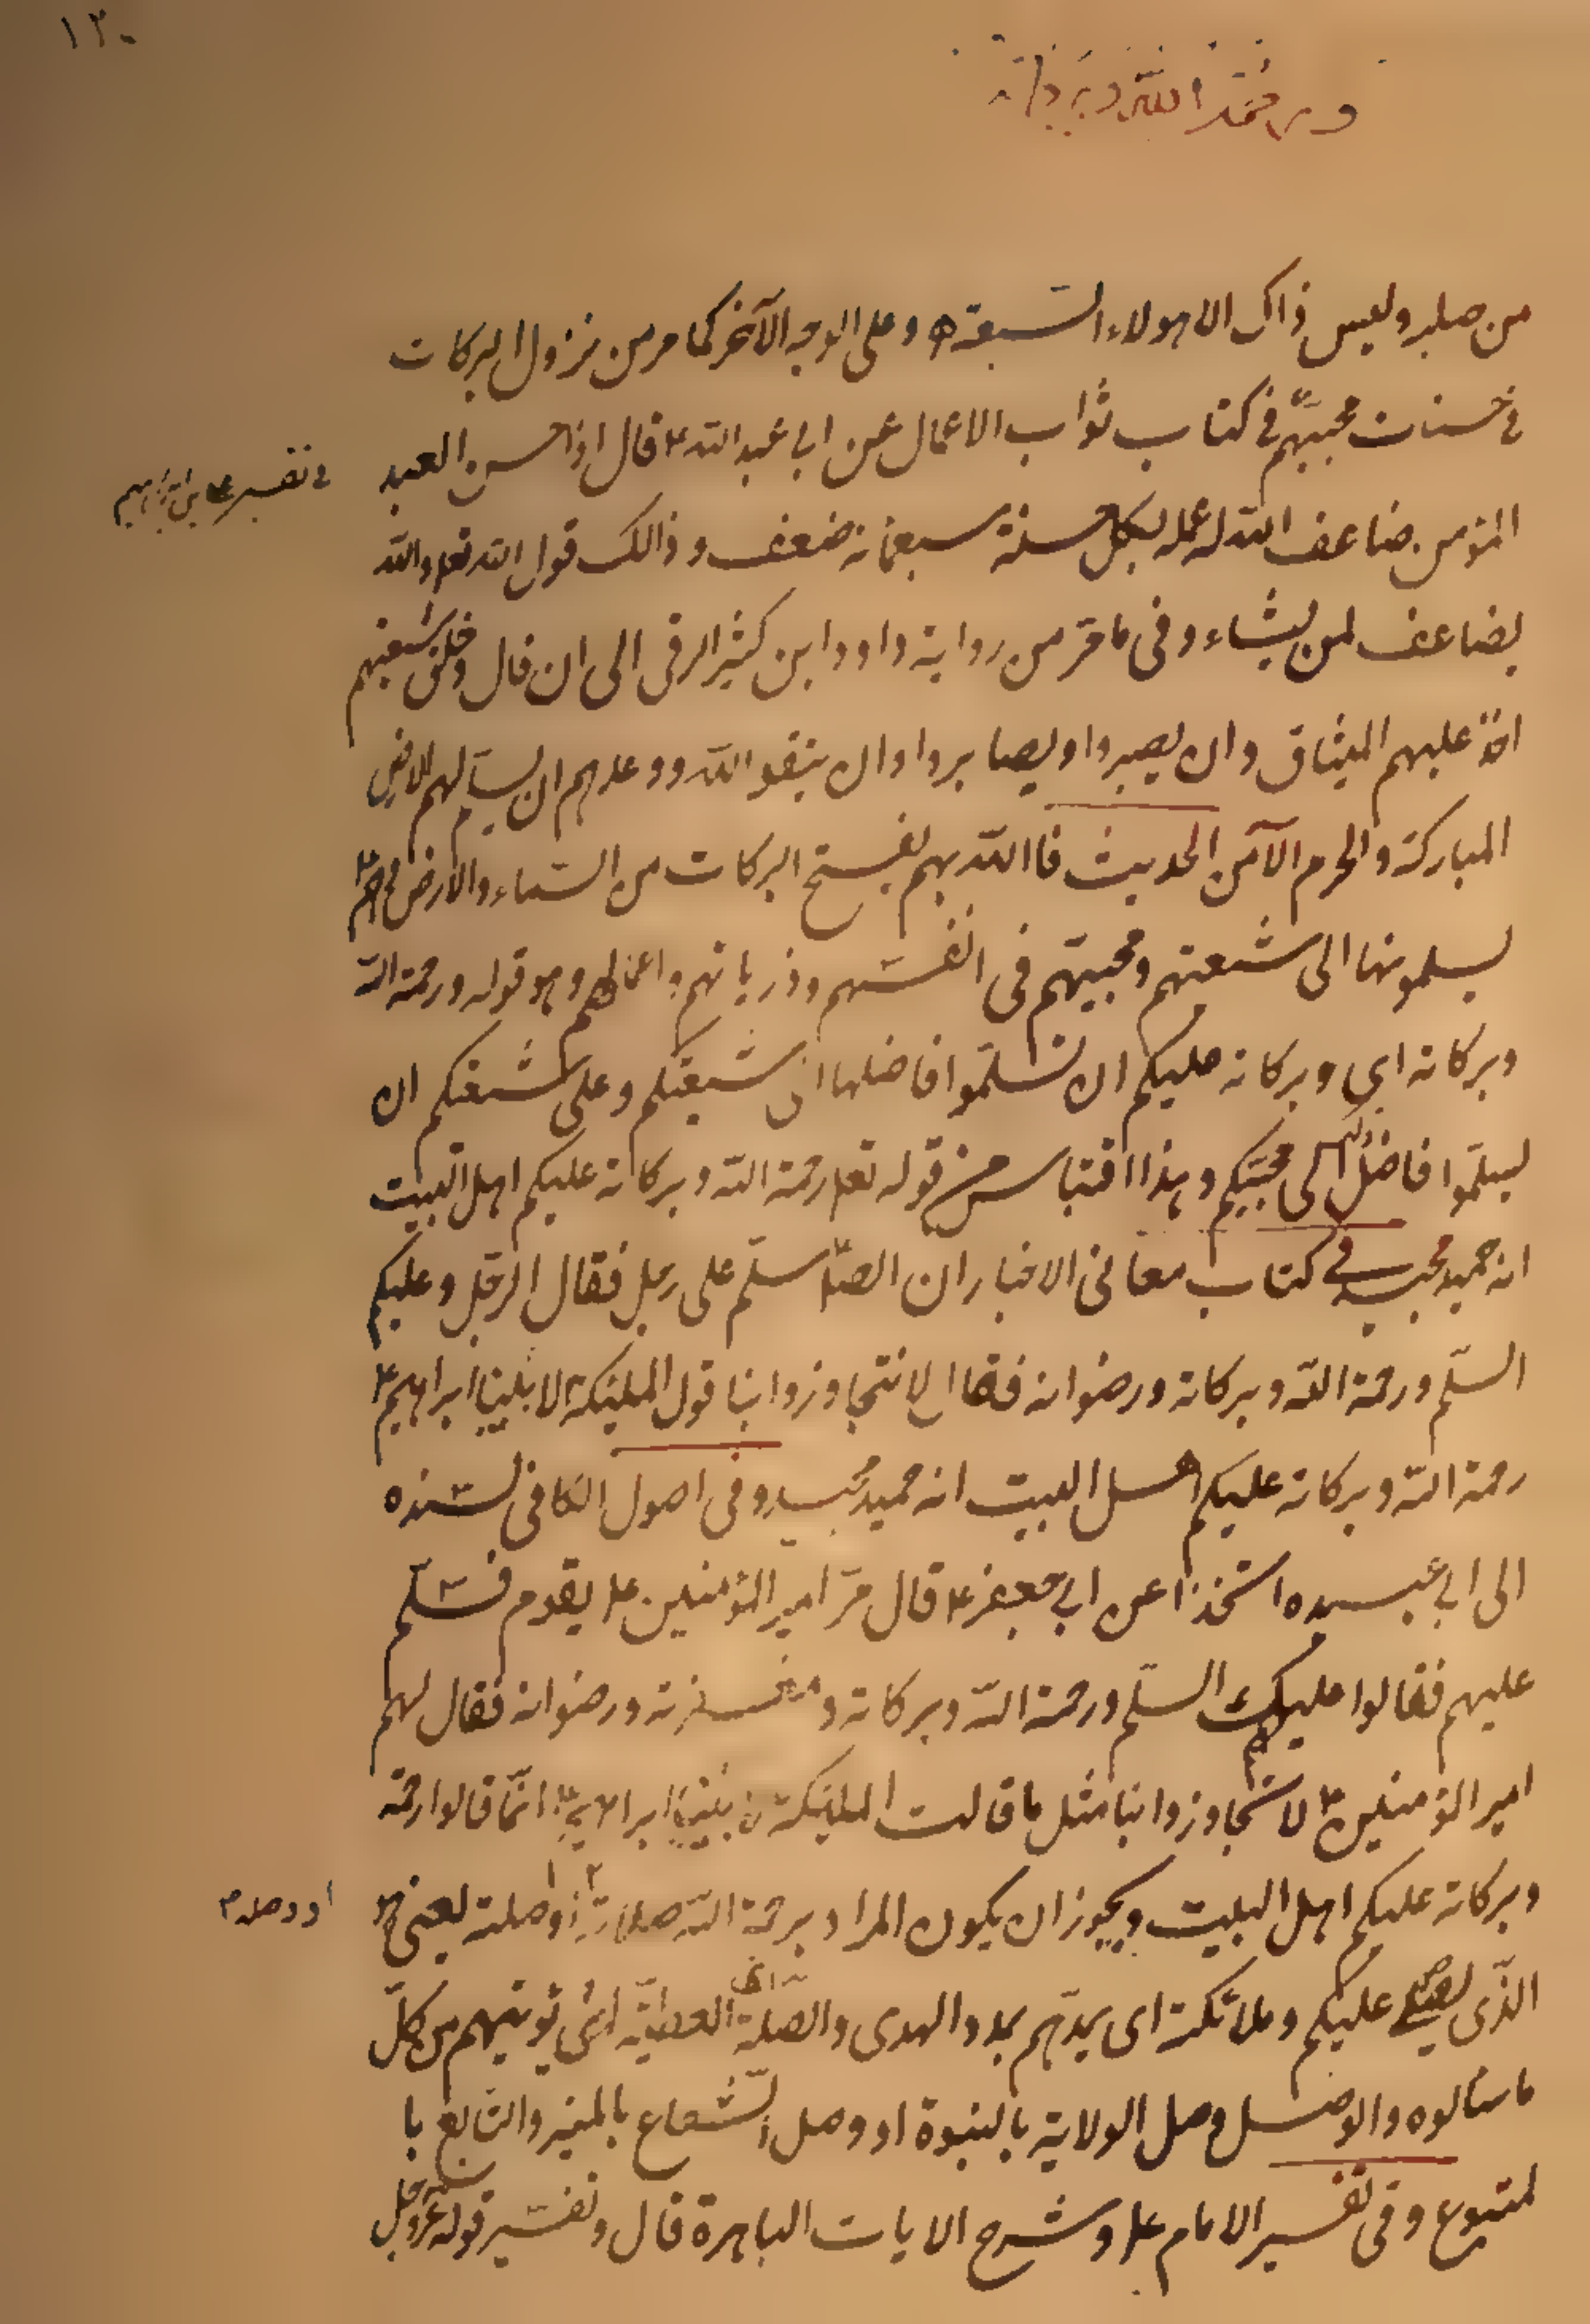 ١٣٠
ورحمة الله وبركاته
من صلبه وليس ذاك الا هولاء السبعة وعلى الوجه الآخر كما مر من نزول البركات
في حسنات محبيهم في كتاب ثواب الاعمال عن ابي عبد الله ع قال اذا احسن العبد
في تفسير علي بن ابراهيم
المؤمن ضاعف الله له عمله بكل حسنة سبعمائة ضعف وذالك قول الله تعا والله
يضاعف لمن يشاء وفى ما مر من رواية داود ابن كثير الرقى الى ان قال وخلق شيعتهم
اخذ عليهم الميثاق وان يصبروا ويصابروا وان يتقو الله ووعدهم ان يسلم لهم الارض
المباركة والحرم الآمن الحديث فاالله بهم يفتح البركات من السماء والارض
يسلمونها الى شيعتهم ومحبيهم فى انفسهم وذرياتهم واعمالهم وهو قوله ورحمة الله
وبركاته اى وبركاته عليكم ان تسلموا فاضلها الى شيعتكم وعلى شيعتكم ان
يسلموا فاضل الى محبيكم وهذا اقتباس من قوله تعا رحمة الله وبركاته عليكم اهل البيت
انه حميد مجيد في كتاب معانى الاخبار ان الص ع سلم على رجل فقال الرجل وعليكم
السلم ورحمة الله وبركاته ورضوانه فقال لا تتجاوزوا بنا قول الملئكة لابينا ابراهيم ع
رحمة الله وبركاته عليكم اهل البيت انه حميد مجيد وفى اصول الكافى بسنده
الى ابي عبيده عن ابي جعفر ع قال مر امير المؤمنين ع بقوم فسلم
عليهم فقالوا عليك السلم ورحمة الله وبركاته ومغفرته ورضوانه فقال لهم
امير المؤمنين ع لا تتجاوزوا بنا مثل ما قالت الملئكة لابينا ابراهيم ع انما قالوا رحمة
وبركاته عليكم اهل البيت ويجوز ان يكون المراد برحمة الله صلاته او صلته يعني هو
او وصله
الذى يصلي عليكم وملائكته اى يمدهم بمدد الهدى والصلة العطية اى يؤتيهم من كل
ما سالوه والوصل وصل الولاية بالنبوة او وصل الشعاع بالمنير والتابع با
لمتبوع وفى تفسير الامام ع وشرح الايات الباهرة قال وتفسير قوله عز وجل